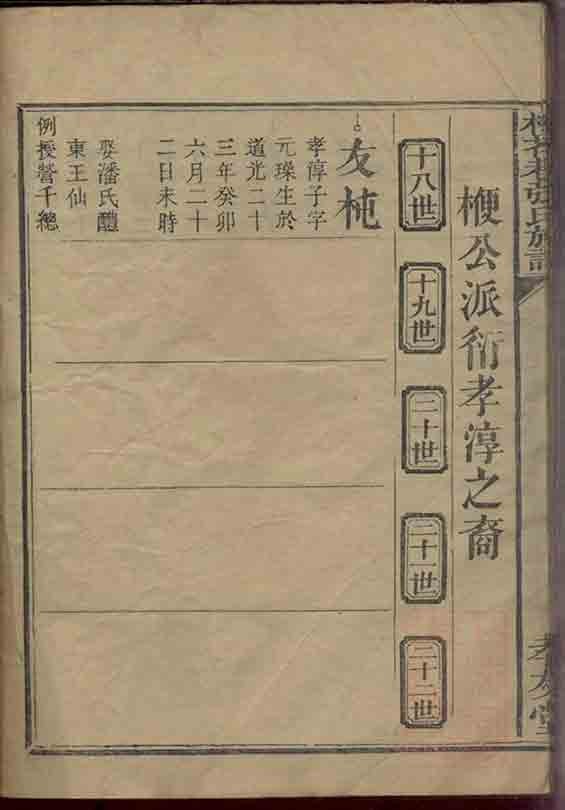 張氏族譜
孝友堂
楩公派衍孝淳之裔
十八世
十九世
二十世
二十一世
二十二世
友杶
孝淳子字
元璪生於
道光二十
三年癸卯
六月二十
二日未時
娶潘氏醴
東王仙
例授營千總